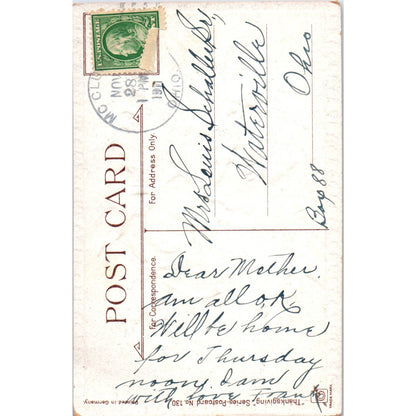 POST CARD
For Correspondence.
For Address Only.
Mc CLU
NOV
28
1 PM
191
OHIO.
Mrs Louis Schaller Sr,
Waterville
Ohio
Box 88
Dear Mother.
am all OK.
Will be home
for Thursday
noon, I am
with love
"Thanksgiving Series-Postcard No. 130."
Printed in Germany
TRADE MARK